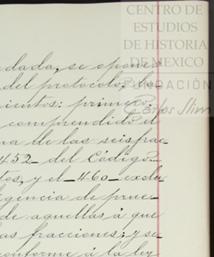 CENTRO DE
ESTUDIOS
DE HISTORIA
DE MEXICO
FUNDACIÓN
Carlos Slim
dada, se oponen
del protocolo; la
cientos: primero,
comprendido el
na de las seis frac
452 del Código
tes, y el 460 exclu
igencia de prue
de aquellas á que
as fracciones; y se
conforme á la ley